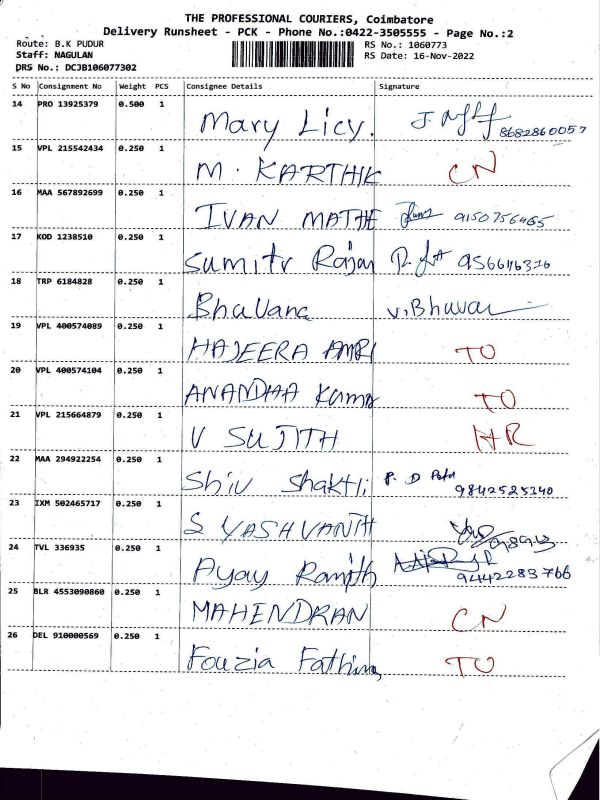 THE PROFESSIONAL COURIERS, Coimbatore
Delivery Runsheet - PCK - Phone No.:0422-3505555 - Page No.:2
Route: B.K PUDUR RS No.: 1060773
Staff: NAGULAN RS Date: 16-Nov-2022
DRS No.: DCJB106077302
S No Consignment No Weight PCS Consignee Details Signature
14 PRO 13925379 0.500 1 Mary Licy. 8682860057
15 VPL 215542434 0.250 1 M. KARTHIK CN
16 MAA 567892699 0.250 1 IVAN MATHE 9150756465
17 KOD 1238510 0.250 1 Sumitr Rajan
18 TRP 6184828 0.250 1 Bhavana V.Bhavar
19 VPL 400574089 0.250 1 HAJEERA AMRI TO
20 VPL 400574104 0.250 1 ANANDHA Kuma TO
21 VPL 215664879 0.250 1 V SUJITH NR
22 MAA 294922254 0.250 1 Shiv Shakti P. D 9842525340
23 IXM 502465717 0.250 1 S YASHVANTH
24 TVL 336935 0.250 1 Ajay Ranjith 9442283766
25 BLR 4553090860 0.250 1 MAHENDRAN CN
26 DEL 910000569 0.250 1 Fouzia Fathima TO